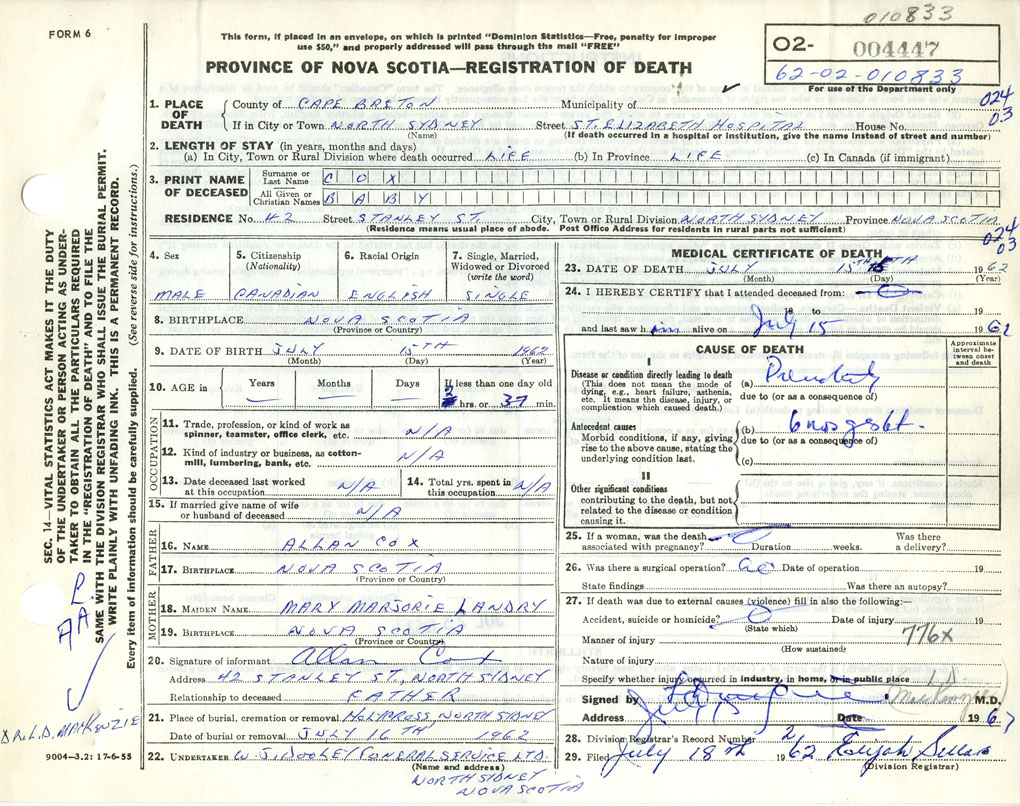 010833
FORM 6
This form, if placed in an envelope, on which is printed "Dominion Statistics—Free, penalty for improper
use $50," and properly addressed will pass through the mail "FREE"
PROVINCE OF NOVA SCOTIA—REGISTRATION OF DEATH
02- 004447
62-02-010833
For use of the Department only
024
03
1. PLACE OF DEATH
County of CAPE BRETON Municipality of
If in City or Town NORTH SYDNEY Street ST. ELIZABETH HOSPITAL House No.
(Name) (If death occurred in a hospital or institution, give the name instead of street and number)
2. LENGTH OF STAY (in years, months and days)
(a) In City, Town or Rural Division where death occurred LIFE (b) In Province LIFE (c) In Canada (if immigrant)
3. PRINT NAME OF DECEASED
Surname or Last Name COX
All Given or Christian Names BABY
RESIDENCE No. 42 Street STANLEY ST. City, Town or Rural Division NORTH SYDNEY Province NOVA SCOTIA
(Residence means usual place of abode. Post Office Address for residents in rural parts not sufficient)
024
03
4. Sex
MALE
5. Citizenship
(Nationality)
CANADIAN
6. Racial Origin
ENGLISH
7. Single, Married,
Widowed or Divorced
(write the word)
SINGLE
8. BIRTHPLACE NOVA SCOTIA
(Province or Country)
9. DATE OF BIRTH JULY 15TH 1962
(Month) (Day) (Year)
10. AGE in Years Months Days If less than one day old
2 hrs. or 37 min.
OCCUPATION
11. Trade, profession, or kind of work as
spinner, teamster, office clerk, etc. N/A
12. Kind of industry or business, as cotton-
mill, lumbering, bank, etc. N/A
13. Date deceased last worked
at this occupation N/A
14. Total yrs. spent in
this occupation N/A
15. If married give name of wife
or husband of deceased N/A
FATHER
16. NAME ALLAN COX
17. BIRTHPLACE NOVA SCOTIA
(Province or Country)
MOTHER
18. MAIDEN NAME MARY MARJORIE LANDRY
19. BIRTHPLACE NOVA SCOTIA
(Province or Country)
20. Signature of informant Allan Cox
Address 42 STANLEY ST., NORTH SYDNEY
Relationship to deceased FATHER
21. Place of burial, cremation or removal HOLYCROSS NORTH SYDNEY
Date of burial or removal JULY 16TH 1962
22. UNDERTAKER W. J. DOOLEY GENERAL SERVICE LTD.
(Name and address)
NORTH SYDNEY
NOVA SCOTIA
MEDICAL CERTIFICATE OF DEATH
23. DATE OF DEATH JULY 15TH 1962
(Month) (Day) (Year)
24. I HEREBY CERTIFY that I attended deceased from:
19 to 19
and last saw him alive on July 15 1962
CAUSE OF DEATH
Approximate
interval be-
tween onset
and death
I
Disease or condition directly leading to death
(This does not mean the mode of
dying, e.g., heart failure, asthenia,
etc. It means the disease, injury, or
complication which caused death.)
(a) Prematurity
due to (or as a consequence of)
Antecedent causes
Morbid conditions, if any, giving
rise to the above cause, stating the
underlying condition last.
(b) 6 mos gestat.
due to (or as a consequence of)
(c)
II
Other significant conditions
contributing to the death, but not
related to the disease or condition
causing it.
25. If a woman, was the death
associated with pregnancy? Duration weeks. Was there
a delivery?
26. Was there a surgical operation? no Date of operation 19
State findings Was there an autopsy?
27. If death was due to external causes (violence) fill in also the following:—
Accident, suicide or homicide? Date of injury 19
(State which)
776X
Manner of injury
(How sustained)
Nature of injury
Specify whether injury occurred in industry, in home, or in public place
Signed by L D MacKenzie M.D.
Address Date 1962
28. Division Registrar's Record Number 21
29. Filed July 18th 1962
(Division Registrar)
SEC. 14—VITAL STATISTICS ACT MAKES IT THE DUTY
OF THE UNDERTAKER OR PERSON ACTING AS UNDER-
TAKER TO OBTAIN ALL THE PARTICULARS REQUIRED
IN THE "REGISTRATION OF DEATH" AND TO FILE THE
SAME WITH THE DIVISION REGISTRAR WHO SHALL ISSUE THE BURIAL PERMIT.
WRITE PLAINLY WITH UNFADING INK. THIS IS A PERMANENT RECORD.
Every item of information should be carefully supplied. (See reverse side for instructions.)
DR. L.D. MACKENZIE
9004—3.2: 17-6-55